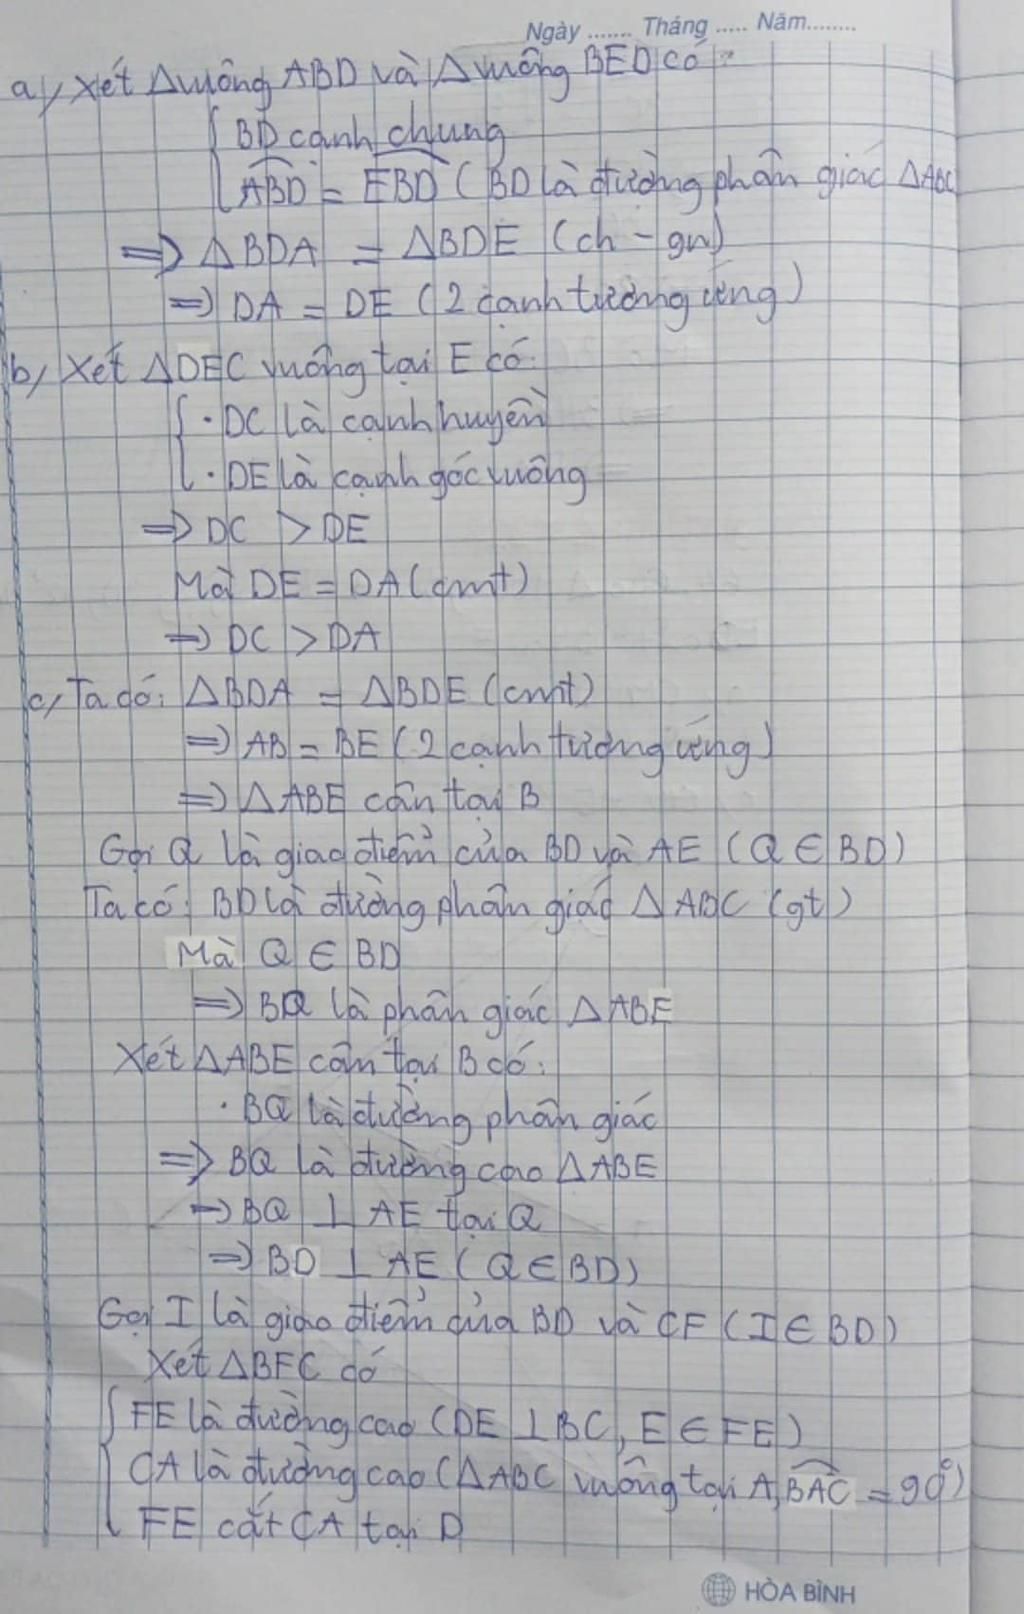 Ngày ....... Tháng ..... Năm........
a, Xét Δ vuông ABD và Δ vuông BED có:
BD cạnh chung
ABD = EBD (BD là đường phân giác ΔABC
=> ΔBDA = ΔBDE (ch - gn)
=> DA = DE (2 cạnh tương ứng)
b, Xét ΔDEC vuông tại E có:
· DC là cạnh huyền
· DE là cạnh góc vuông
=> DC > DE
Mà DE = DA (cmt)
=> DC > DA
c, Ta có: ΔBDA = ΔBDE (cmt)
=> AB = BE (2 cạnh tương ứng)
=> ΔABE cân tại B
Gọi Q là giao điểm của BD và AE (Q ∈ BD)
Ta có: BD là đường phân giác ΔABC (gt)
Mà Q ∈ BD
=> BQ là phân giác ΔABE
Xét ΔABE cân tại B có:
· BQ là đường phân giác
=> BQ là đường cao ΔABE
=> BQ ⊥ AE tại Q
=> BD ⊥ AE (Q ∈ BD)
Gọi I là giao điểm của BD và CF (I ∈ BD)
Xét ΔBFC có
FE là đường cao (DE ⊥ BC, E ∈ FE)
CA là đường cao (ΔABC vuông tại A, BAC = 90°)
FE cắt CA tại D
HÒA BÌNH